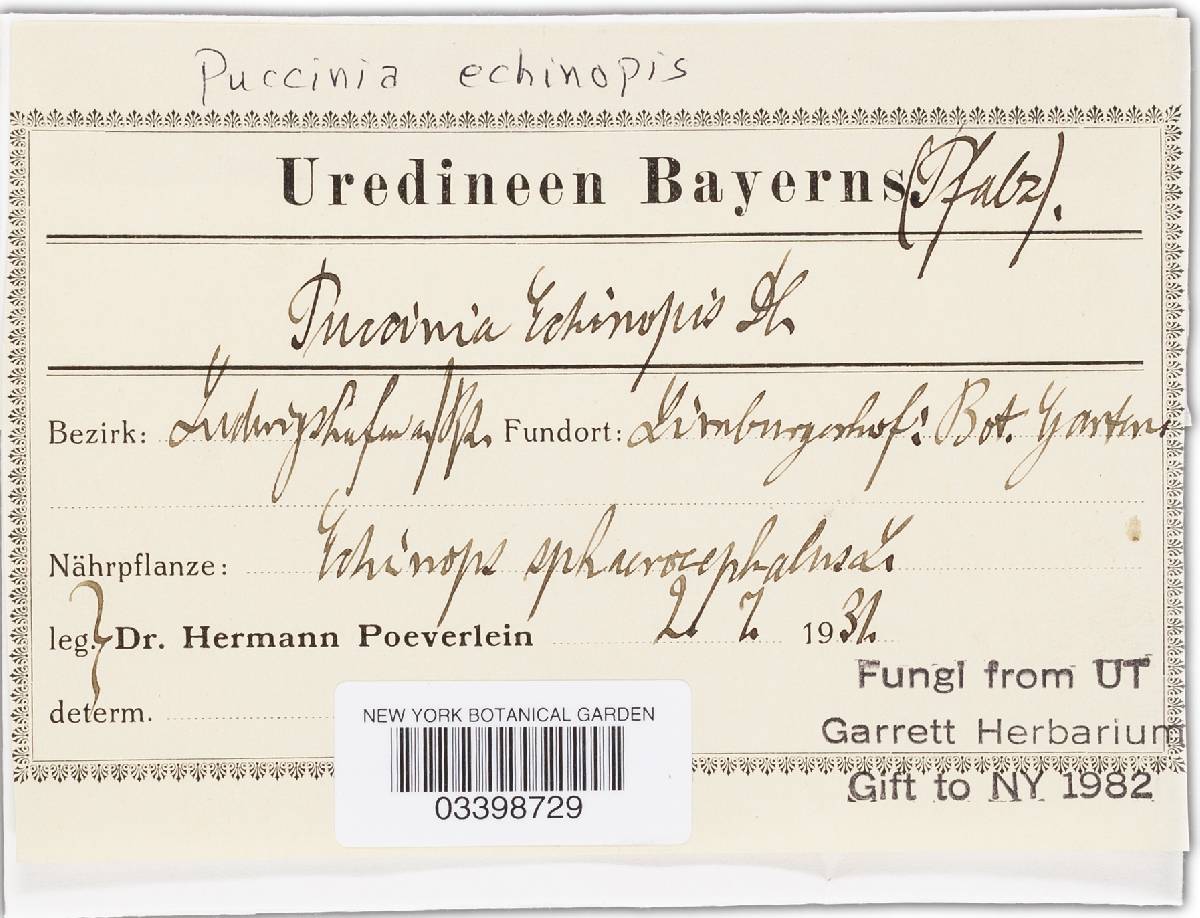 Puccinia echinopis
Uredineen Bayerns (Pfalz).
Puccinia Echinopis DC.
Bezirk: Ludwigshafen a/Rh. Fundort: Limburgerhof: Bot. Garten.
Nährpflanze: Echinops sphaerocephalus L.
leg. Dr. Hermann Poeverlein 2. 7. 1931.
determ.
Fungi from UT
Garrett Herbarium
Gift to NY 1982
NEW YORK BOTANICAL GARDEN
03398729